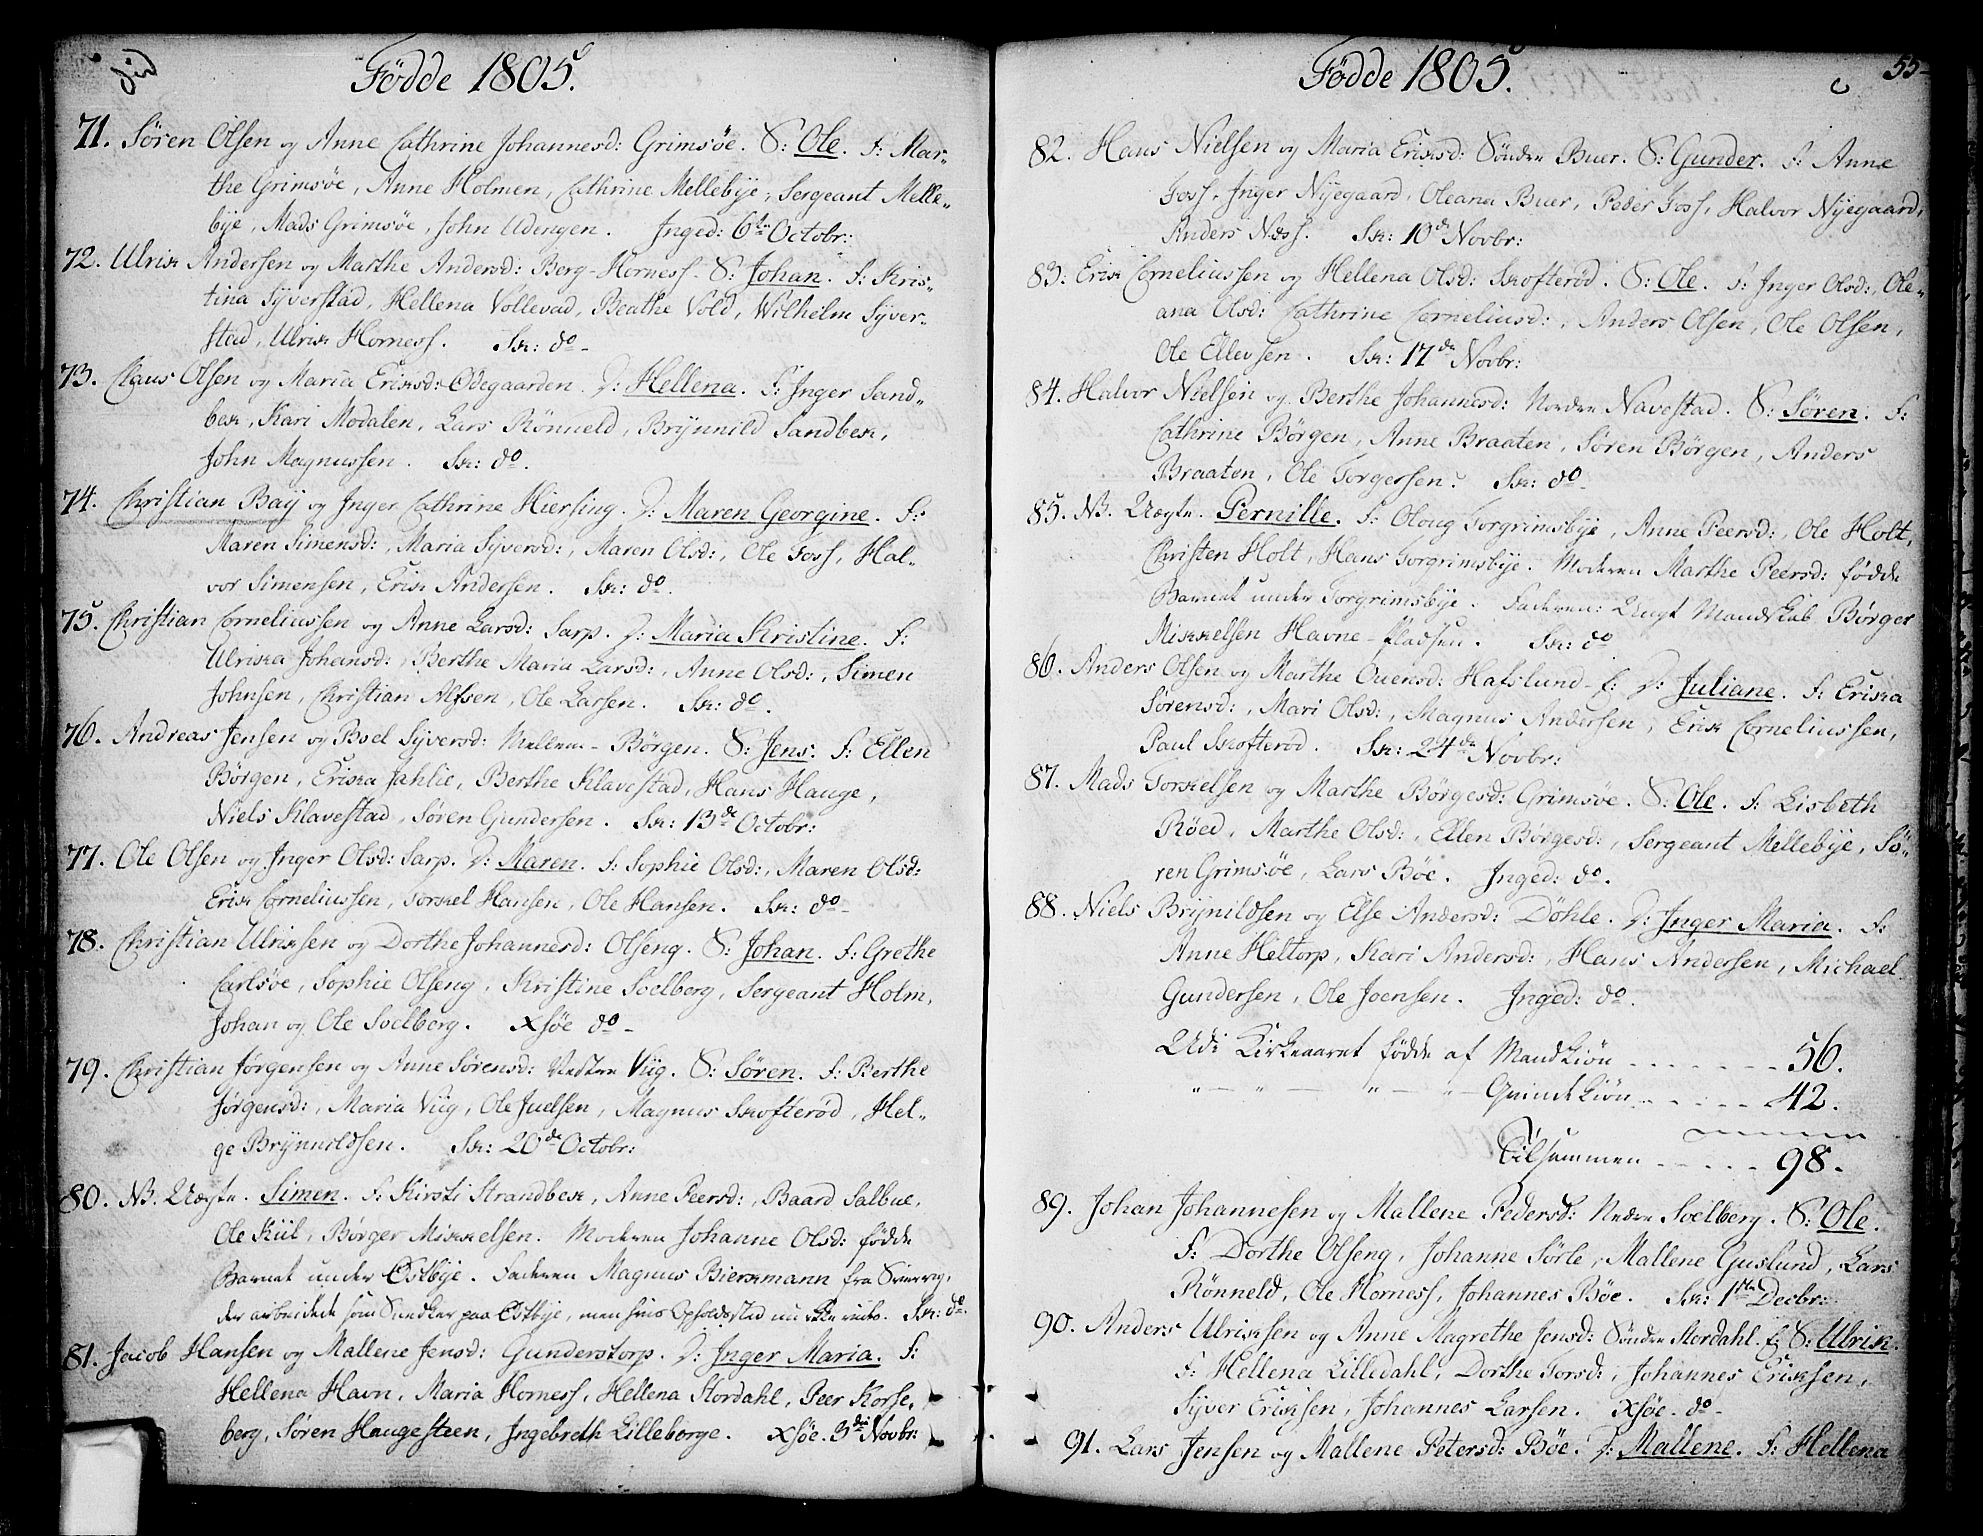 Fødde 1805.
71. Søren Olsen og Anne Cathrine Johannesd: Grimsøe. S: Ole. F: Mar-
the Grimsøe, Anne Holmen, Cathrine Mellebÿe, Sergeant Melle-
bÿe, Mads Grimsøe, John Udengen. Inged: 6te Octobr:
72. Ulrik Andersen og Marthe Andersd: Berg-Horness. S: Johan. F: Kris-
tina Sÿverstad, Hellena Vollevad, Beathe Vold, Wilhelm Sÿver-
stad, Ulrik Horness. Sk: do
73. Claus Olsen og Maria Eriksd: Ødegaarden. D: Hellena. F: Inger Sand-
bek, Kari Modalen, Lars Rönneld, Brÿnnild Sandbek,
John Magnussen. Sk: do.
74. Christian Baÿ og Inger Cathrine Hiersing. D: Maren Georgine. F:
Maren Simensd:, Maria Sÿversd:, Maren Olsd:, Ole Foss, Hal-
vor Simensen, Erik Andersen. Sk: do.
75. Christian Corneliussen og Anne Larsd: Sarp. D: Maria Kristine. F:
Ulrikka Johansd:, Berthe Maria Larsd:, Anne Olsd:, Simen
Johnsen, Christian Alfsen, Ole Larsen. Sk: do.
76. Andreas Jensen og Boel Sÿversd: Mellem-Børgen. S: Jens. F: Ellen
Børgen, Erikka Jahlie, Berthe Klavestad, Hans Hauge,
Niels Klavestad, Søren Gundersen. Sk: 13de Octobr:
77. Ole Olsen og Inger Olsd: Sarp. D: Maren. F: Sophie Olsd:, Maren Olsd:
Erik Corneliussen, Torkel Hansen, Ole Hansen. Sk: do
78. Christian Ulriksen og Dorthe Johannesd: Olseng. S: Johan. F: Grethe
Carlsøe, Sophie Olseng, Kristine Soelberg, Sergeant Holm,
Johan og Ole Soelberg. Xsöe do
79. Christian Jørgensen og Anne Sørensd: Vestre Viig. S: Søren. F: Berthe
Jørgensd:, Maria Viig, Ole Juelsen, Magnus Skofteröd, Hel-
ge Brÿnnildsen. Sk: 20de Octobr:
80. NB. Uægte. Simen. F: Kirsti Strandbek, Anne Peersd:, Baard Salbue,
Ole Kiil, Børger Mikkelsen. Moderen Johanne Olsd: fødde
Barnet under Østbÿe. Faderen Magnus Bierkmann fra Sverrig,
der arbeidede som Snedker paa Østbÿe, men hvis Opholdsted nu ikke vides. Sk: do.
81. Jacob Hansen og Mallene Jensd: Gunderstorp. D: Inger Maria. F:
Hellena Havn, Maria Horness, Hellena Stordahl, Peer Korse-
berg, Søren Haugesteen, Ingebreth Lilleborge. Xsöe. 3de Novbr:
Fødde 1805. 55
82. Hans Nielsen og Maria Eriksd: Söndre Buer. S: Gunder. F: Anne
Foss, Inger Nÿegaard, Oleana Buer, Peder Foss, Halvor Nÿegaard,
Anders Næss. Sk: 10de Novbr:
83. Erik Corneliussen og Hellena Olsd: Skofteröd. S: Ole. F: Inger Olsd:, Ole-
ana Olsd: Cathrine Corneliusd:, Anders Olsen, Ole Olsen,
Ole Ellevsen. Sk: 17de Novbr:
84. Halvor Nielsen og Berthe Johannesd: Nordre Navestad. S: Søren. F:
Cathrine Börgen, Anne Braaten, Søren Børgen, Anders
Braaten, Ole Torgersen. Sk: do
85. NB. Uægte. Pernille. F: Oloug Torgrimsbÿe, Anne Peersd:, Ole Holt,
Christen Holt, Hans Torgrimsbÿe. Moderen Marthe Peersd: fødde
Barnet under Torgrimsbÿe. Faderen: Ungt Mandskab Børger
Mikkelsen Havne-Pladsen. Sk: do
86. Anders Olsen og Marthe Ouensd: Hafslund-E: D: Juliane. F: Erikka
Sörensd:, Mari Olsd:, Magnus Andersen, Erik Corneliussen,
Paul Skofteröd. Sk: 24de Novbr:
87. Mads Torkelsen og Marthe Börgesd: Grimsøe. S: Ole. F: Lisbeth
Röed, Marthe Olsd:, Ellen Børgesd:, Sergeant Mellebÿe, Sö-
ren Grimsøe, Lars Böe. Inged: do.
88. Niels Brÿnildsen og Else Andersd: Döhle. D: Inger Maria. F:
Anne Heltorp, Kari Andersd:, Hans Andersen, Michael
Gundersen, Ole Joensen. Inged: do.
Udi Kirkeaaret fødde af Mandkiön - - - - - - 56.
" — " — " — " — Quindekiön - - - - - 42.
Tilsammen - - - - - 98.
89. Johan Johannesen og Mallene Pedersd: Nedre Soelberg. S: Ole.
F: Dorthe Olseng, Johanne Sörle, Mallene Guslund, Lars
Rönneld, Ole Horness, Johannes Böe. Sk: 1ste Decbr:
90. Anders Ulriksen og Anne Magrethe Jensd: Söndre Stordahl. E S: Ulrik.
F: Hellena Lilledahl, Dorthe Torsd:, Johannes Eriksen,
Sÿver Eriksen, Johannes Larsen. Xsöe. do
91. Lars Jensen og Mallene Petersd: Böe. D: Mallene. F: Hellena